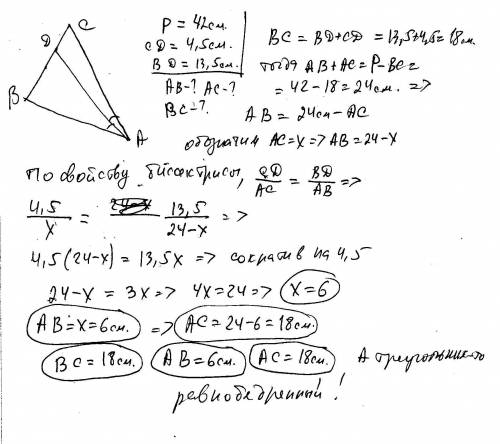 C
D
B
A
P = 42см.
CD = 4,5см.
BD = 13,5см.
AB-? AC-?
BC-?
BC = BD+CD = 13,5+4,5=18см.
тогда AB+AC=P-BC=
= 42-18=24см. =>
AB = 24см-AC
обозначим AC=x => AB=24-x
По свойству биссектрисы, CD/AC = BD/AB =>
4,5/x = 13,5/24-x =>
4,5(24-x) = 13,5x => сократив на 4,5
24-x = 3x => 4x=24 => x=6
AB=x=6см. => AC=24-6=18см.
BC=18см. AB=6см. AC=18см. А треугольник-то
равнобедренный!